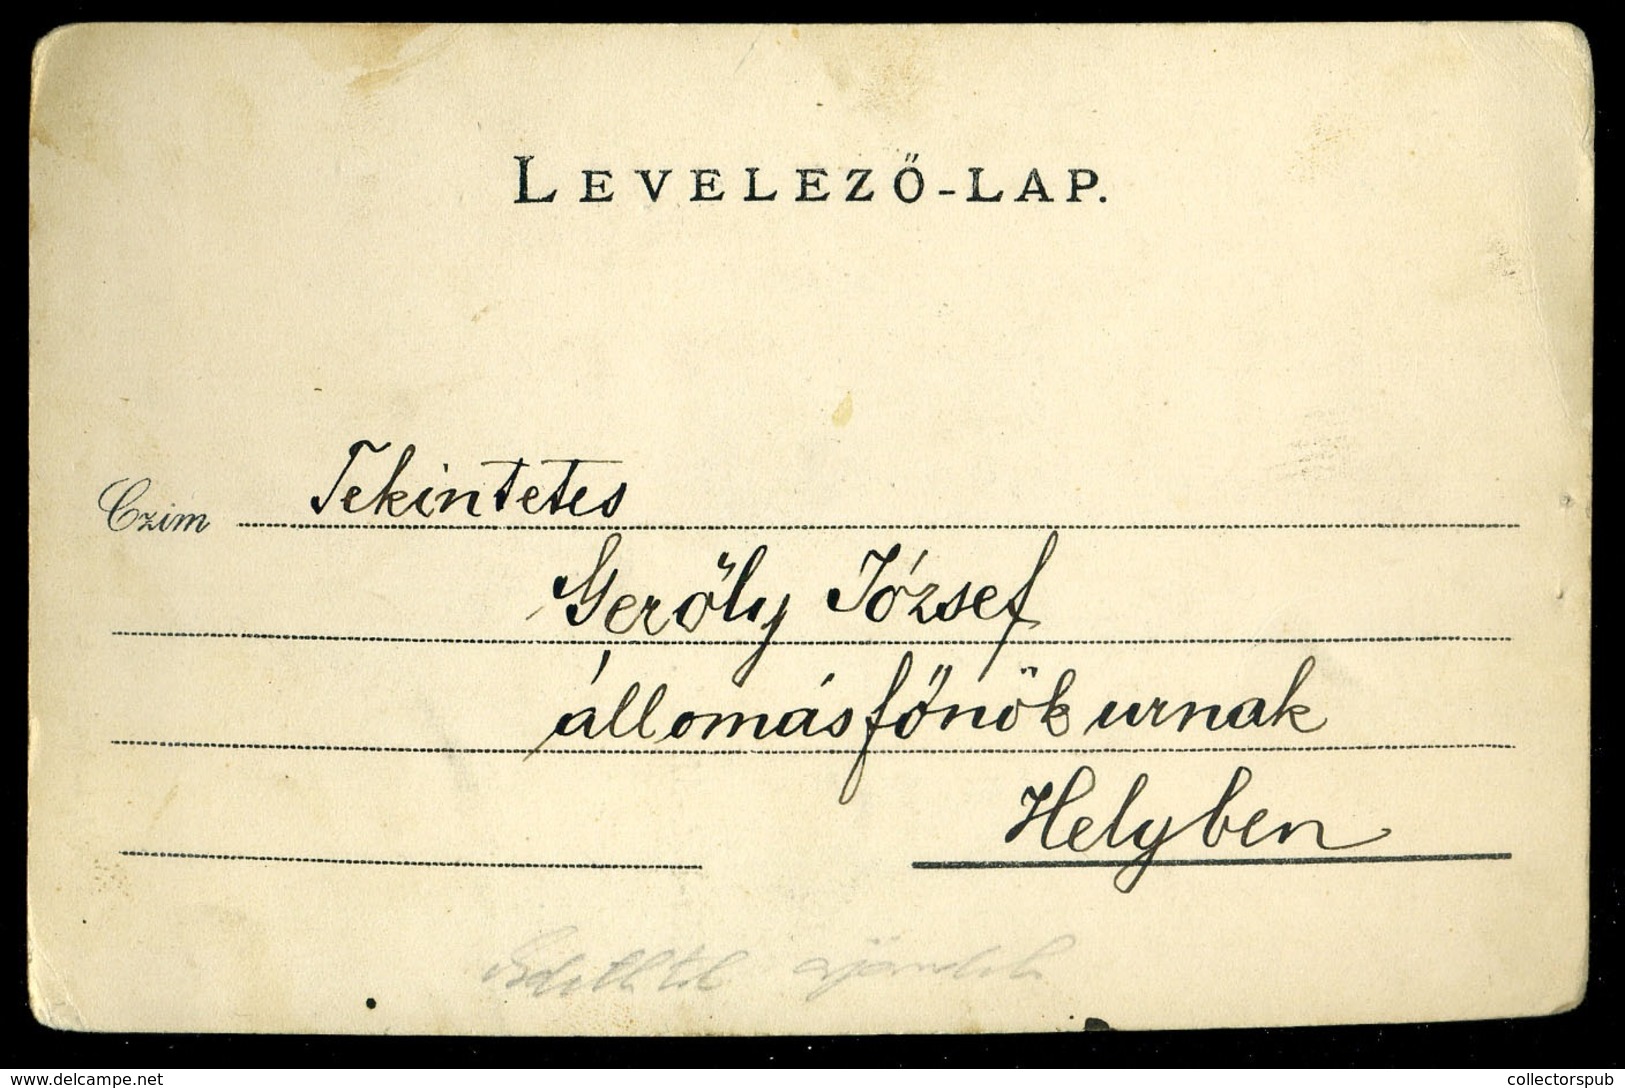 LEVELEZŐ-LAP.
Czim Tekintetes
Gerőly József
állomásfőnök urnak
Helyben
ajándék
www.delcampe.net collectorspub